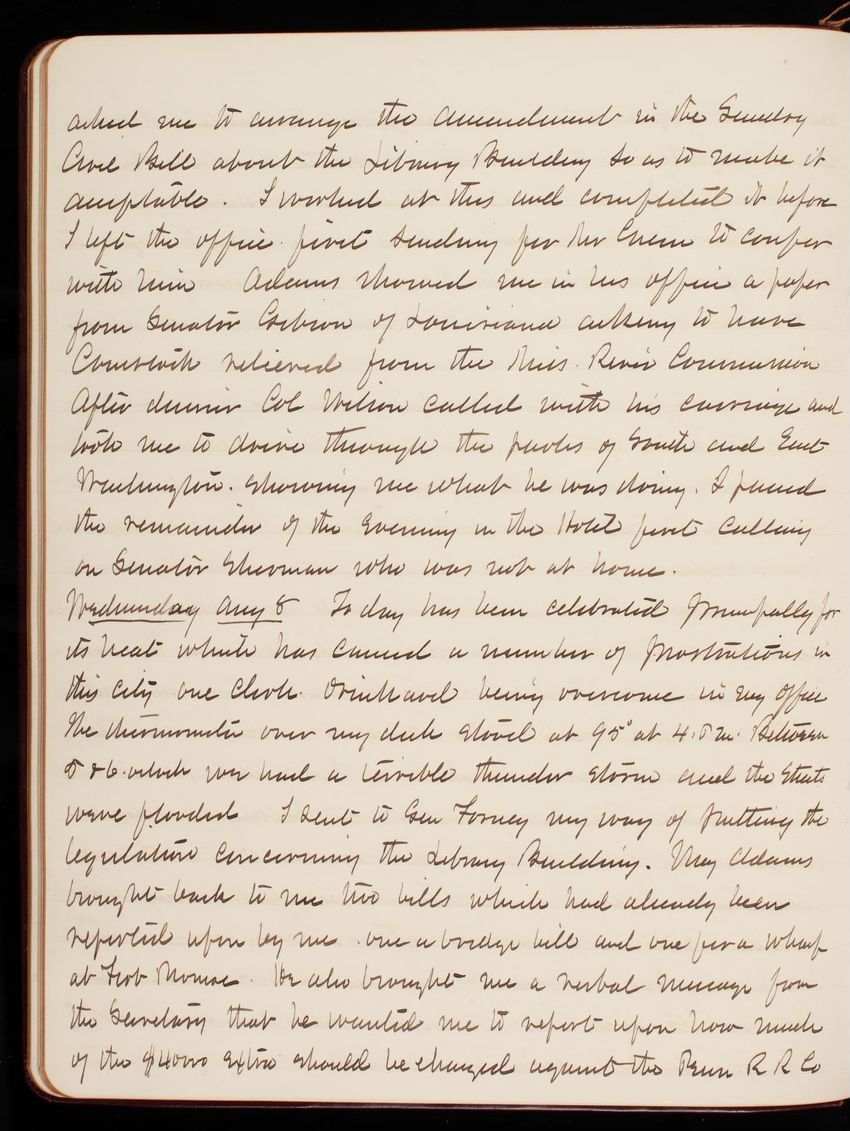 asked me to arrange the amendment in the Sundry
Civil Bill about the Library Building so as to make it
acceptable. I worked at this and completed it before
I left the office first sending for Mr Green to confer
with him Adams showed me in his office a paper
from Senator Gibson of Louisiana asking to have
Comstock relieved from the Miss. River Commission
After dinner Col Wilson called with his carriage and
took me to drive through the parks of South and East
Washington. Showing me what he was doing. I passed
the remainder of the Evening in the Hotel first calling
on Senator Sherman who was not at home.
Wednesday Aug 8 To day has been celebrated principally for
its heat which has caused a number of prostrations in
this city one clerk. Drinkard being overcome in my office
The thermometer over my desk stood at 95° at 4. P.M. Between
5 & 6. oclock we had a terrible thunder storm and the Streets
were flooded I sent to Gen Forney my way of putting the
legislation concerning the Library Building. Maj Adams
brought back to me two bills which had already been
reported upon by me. one a bridge bill and one for a wharf
at Fort Monroe. He also brought me a verbal message from
the Secretary that he wanted me to report upon how much
of the $4000 extra should be charged against the Penn R R Co